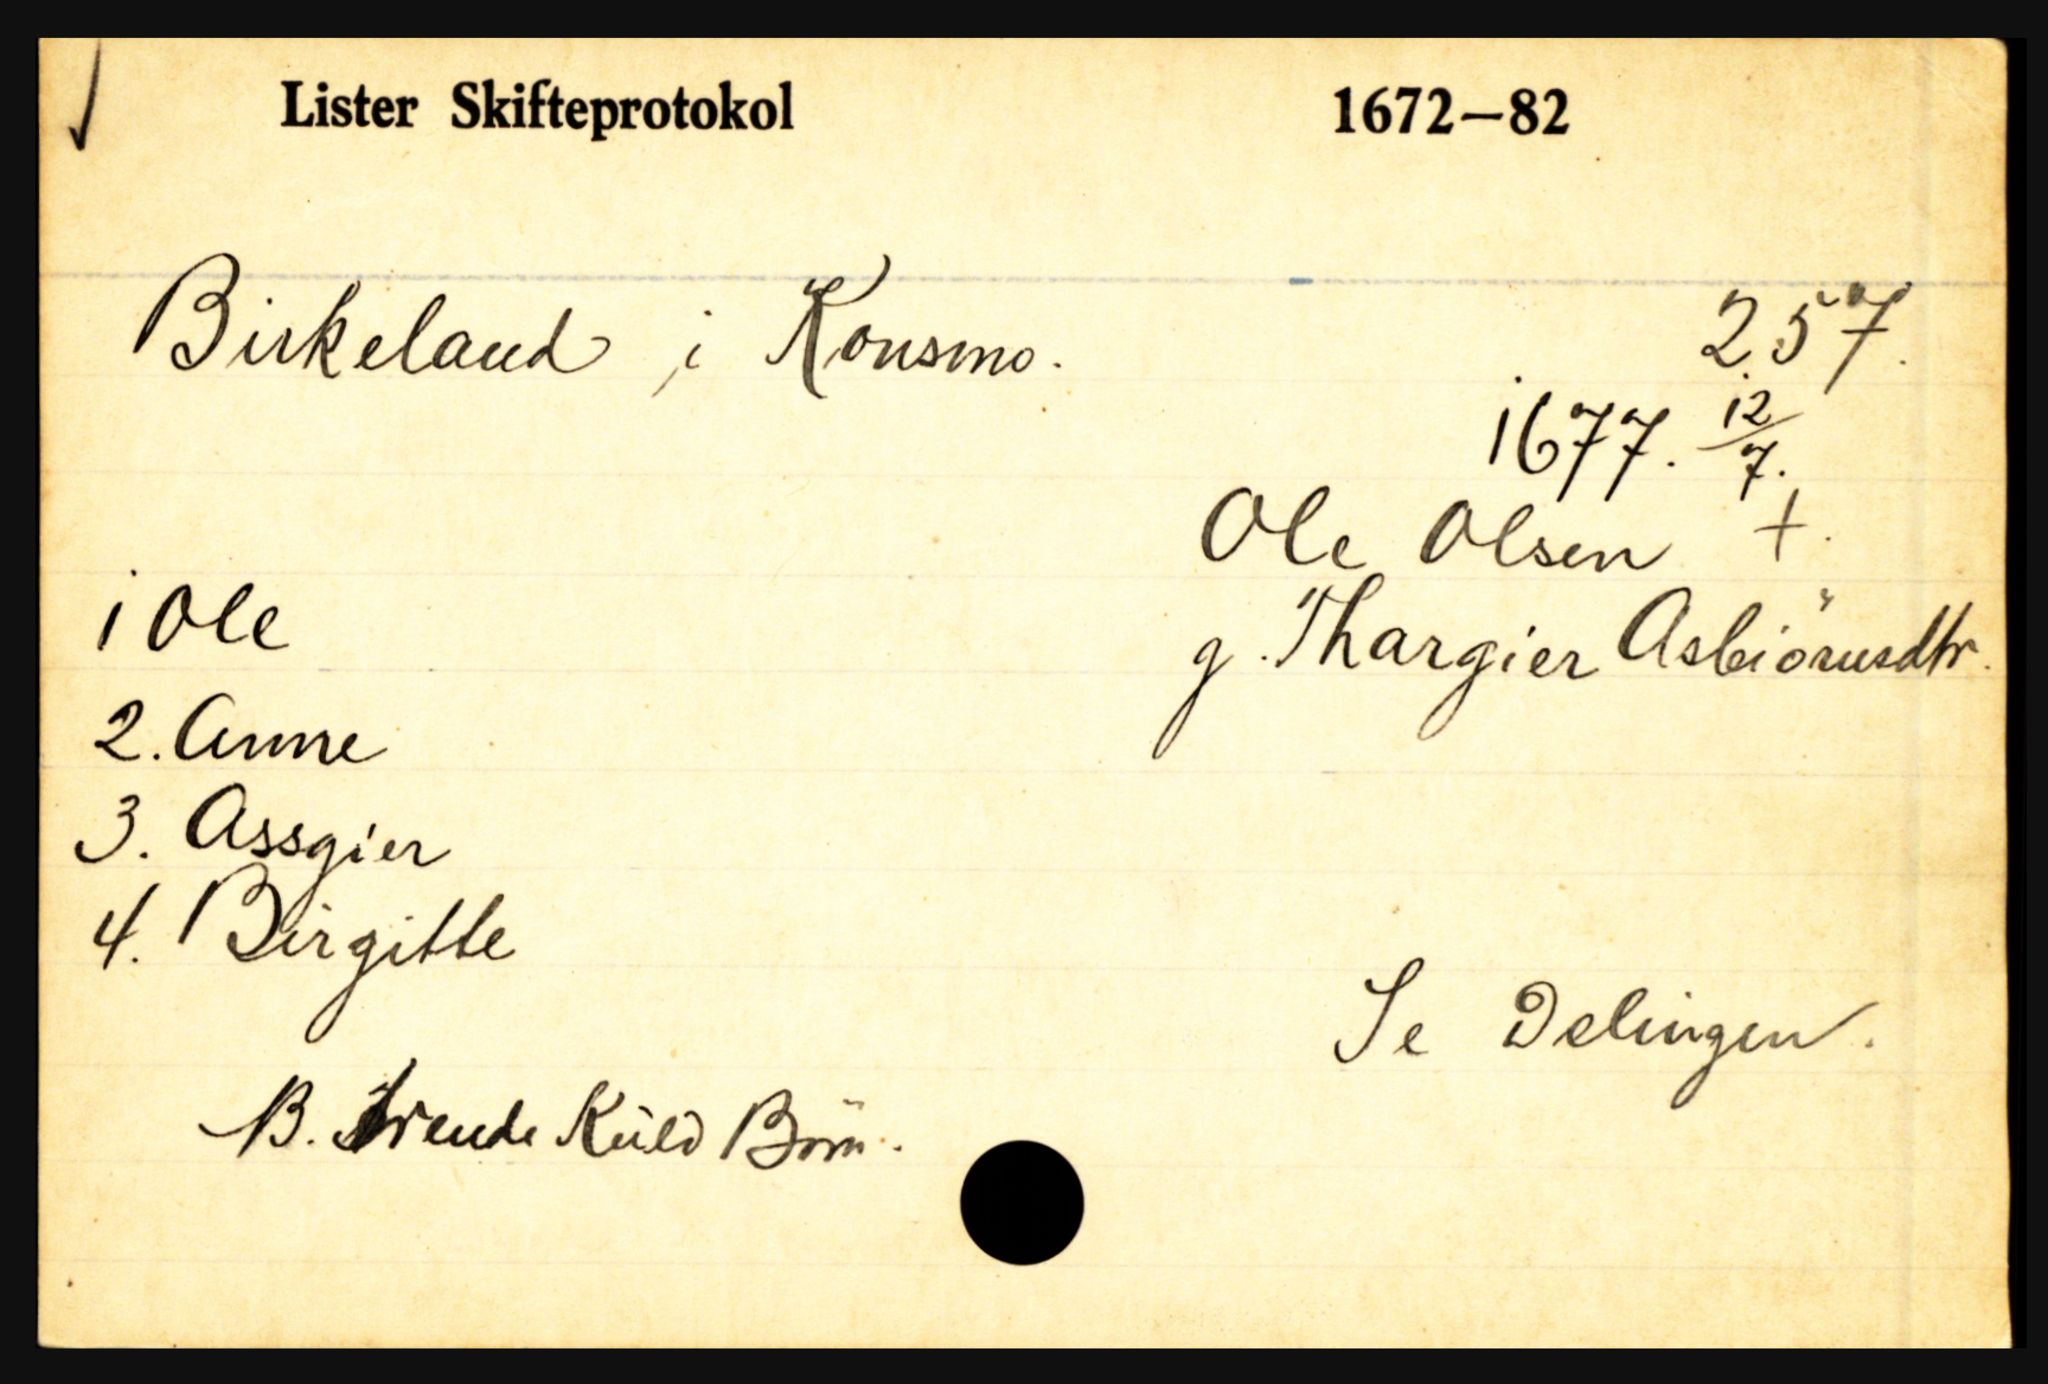 Lister Skifteprotokol 1672—82
Birkeland i Konsmo. 257.
1677. 12/7.
Ole Olsen +.
g. Thargier Asbiörnsdtr.
1 Ole
2. Anne
3. Assgier
4. Birgitte
Se Delingen.
B. Kuld Börn.